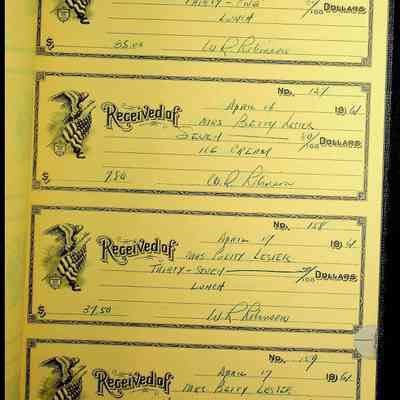 THIRTY-ONE /100 DOLLARS
LUNCH
$ 35.00 W R Robinson
No. 127
APRIL 16 1961
Received of MRS BETTY LESTER
SEVEN 80/100 DOLLARS
ICE CREAM
$ 7.80 W. R. Robinson
No. 128
APRIL 17 1961
Received of MRS BETTY LESTER
THIRTY-SEVEN /100 DOLLARS
LUNCH
$ 37.50 W R Robinson
No. 129
APRIL 17 1961
Received of MRS BETTY LESTER